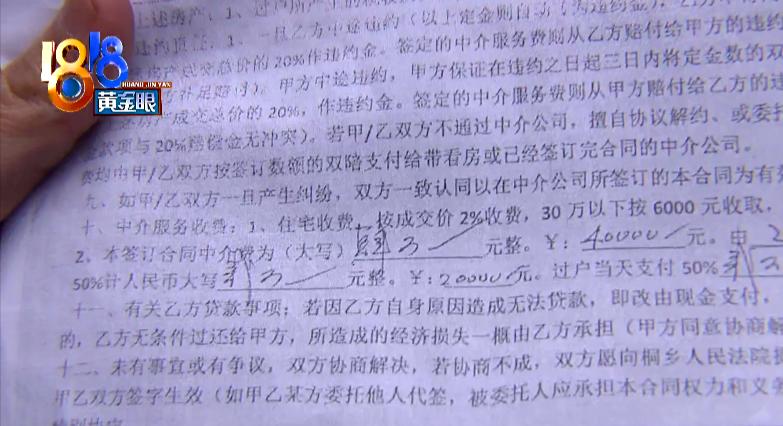 1818
HUANG JIN YAN
黄金眼
上述房产，1、过户所产生的税
违约责任：1、一旦乙方中途违约（以上定金则自动
成交总价的20%作违约金。签定的中介服务费则从乙方赔付给甲方的违约
补足赔付）。甲方中途违约，甲方保证在违约之日起三日内将定金数的双
成交总价的20%，作违约金。签定的中介服务费则从甲方赔付给乙方的违
金款项与20%赔偿金无冲突）。若甲/乙双方不通过中介公司，擅自协议解约、或委托
费均由甲/乙双方按签订数额的双陪支付给带看房或已经签订完合同的中介公司。
九、如甲/乙双方一旦产生纠纷，双方一致认同以在中介公司所签订的本合同为有效
十、中介服务收费：1、住宅收费，按成交价2%收费，30万以下按6000元收取，
2、本签订合同中介费为（大写） 万 元整。￥：40000元。由
50%计人民币大写 万 元整。￥：20000元。过户当天支付50%
十一、有关乙方贷款事项；若因乙方自身原因造成无法贷款，即改由现金支付，
的，乙方无条件过还给甲方，所造成的经济损失一概由乙方承担（甲方同意协商解
十二、未有事宜或有争议，双方协商解决，若协商不成，双方愿向桐乡人民法院提
甲乙双方签字生效（如甲乙某方委托他人代签，被委托人应承担本合同权力和义务